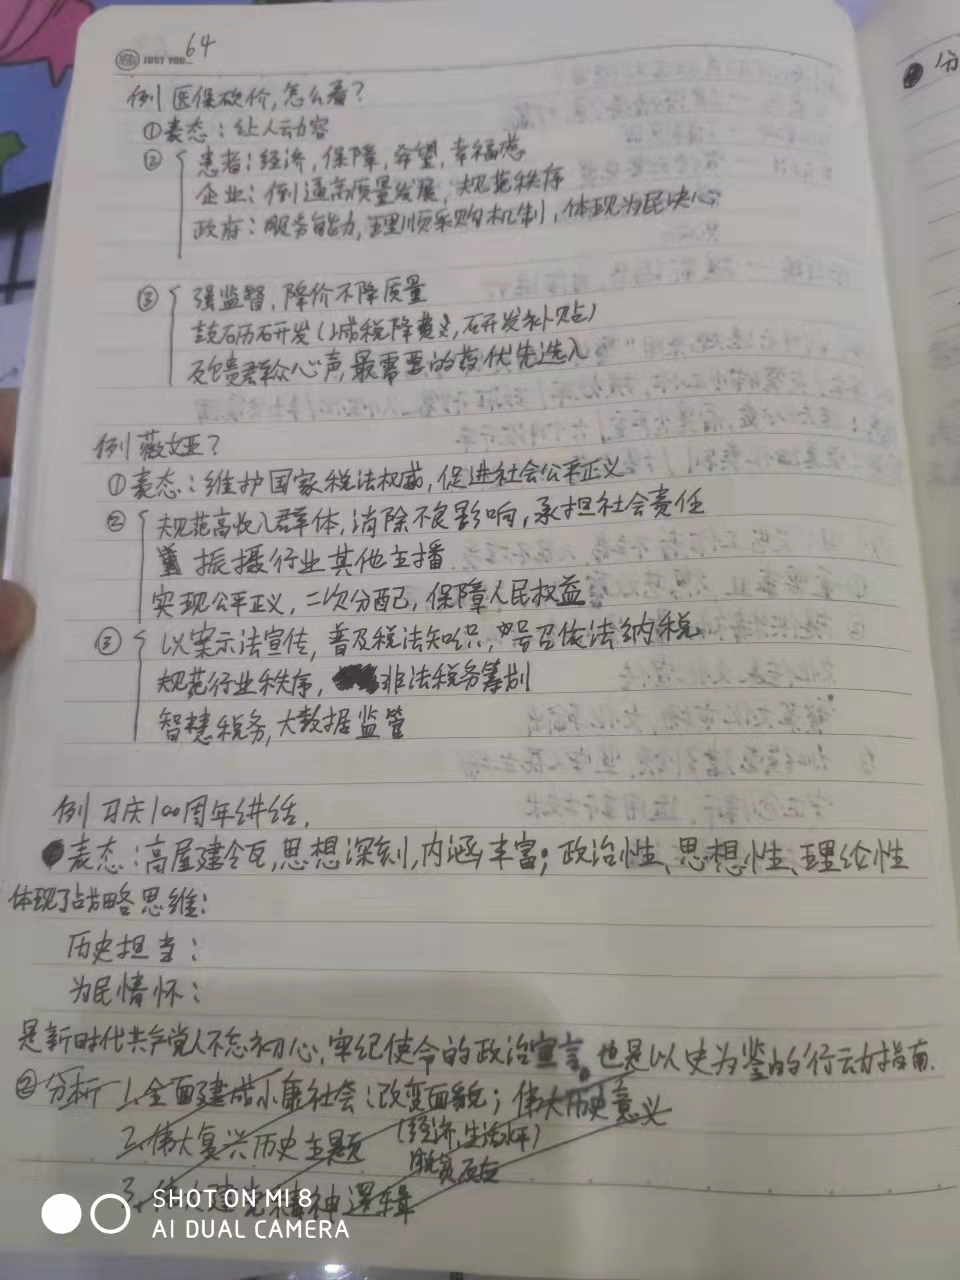 64
JUST YOU...
分
例 医保砍价,怎么看?
①表态:让人动容
② 患者:经济,保障,希望,幸福感
企业:倒逼高质量发展,规范秩序
政府:服务能力,理顺采购机制,体现为民决心
③ 强监督,降价不降质量
鼓励研发(减税降费,研发补贴)
反馈群众心声,最需要的药优先选入
例 薇娅?
①表态:维护国家税法权威,促进社会公平正义
② 规范高收入群体,消除不良影响,承担社会责任
振摄行业其他主播
实现公平正义,二次分配,保障人民权益
③ 以案示法宣传,普及税法知识,号召依法纳税
规范行业秩序,非法税务筹划
智慧税务,大数据监管
例 习庆100周年讲话.
表态:高屋建瓴,思想深刻,内涵丰富;政治性、思想性、理论性
体现了战略思维:
历史担当:
为民情怀:
是新时代共产党人不忘初心,牢纪使命的政治宣言。也是以史为鉴的行动指南.
②分析 1.全面建成小康社会:改变面貌;伟大历史意义
(经济,生活水平)
2.伟大复兴历史主题
脱贫
3. 伟大建党精神逻辑
SHOT ON MI 8
AI DUAL CAMERA